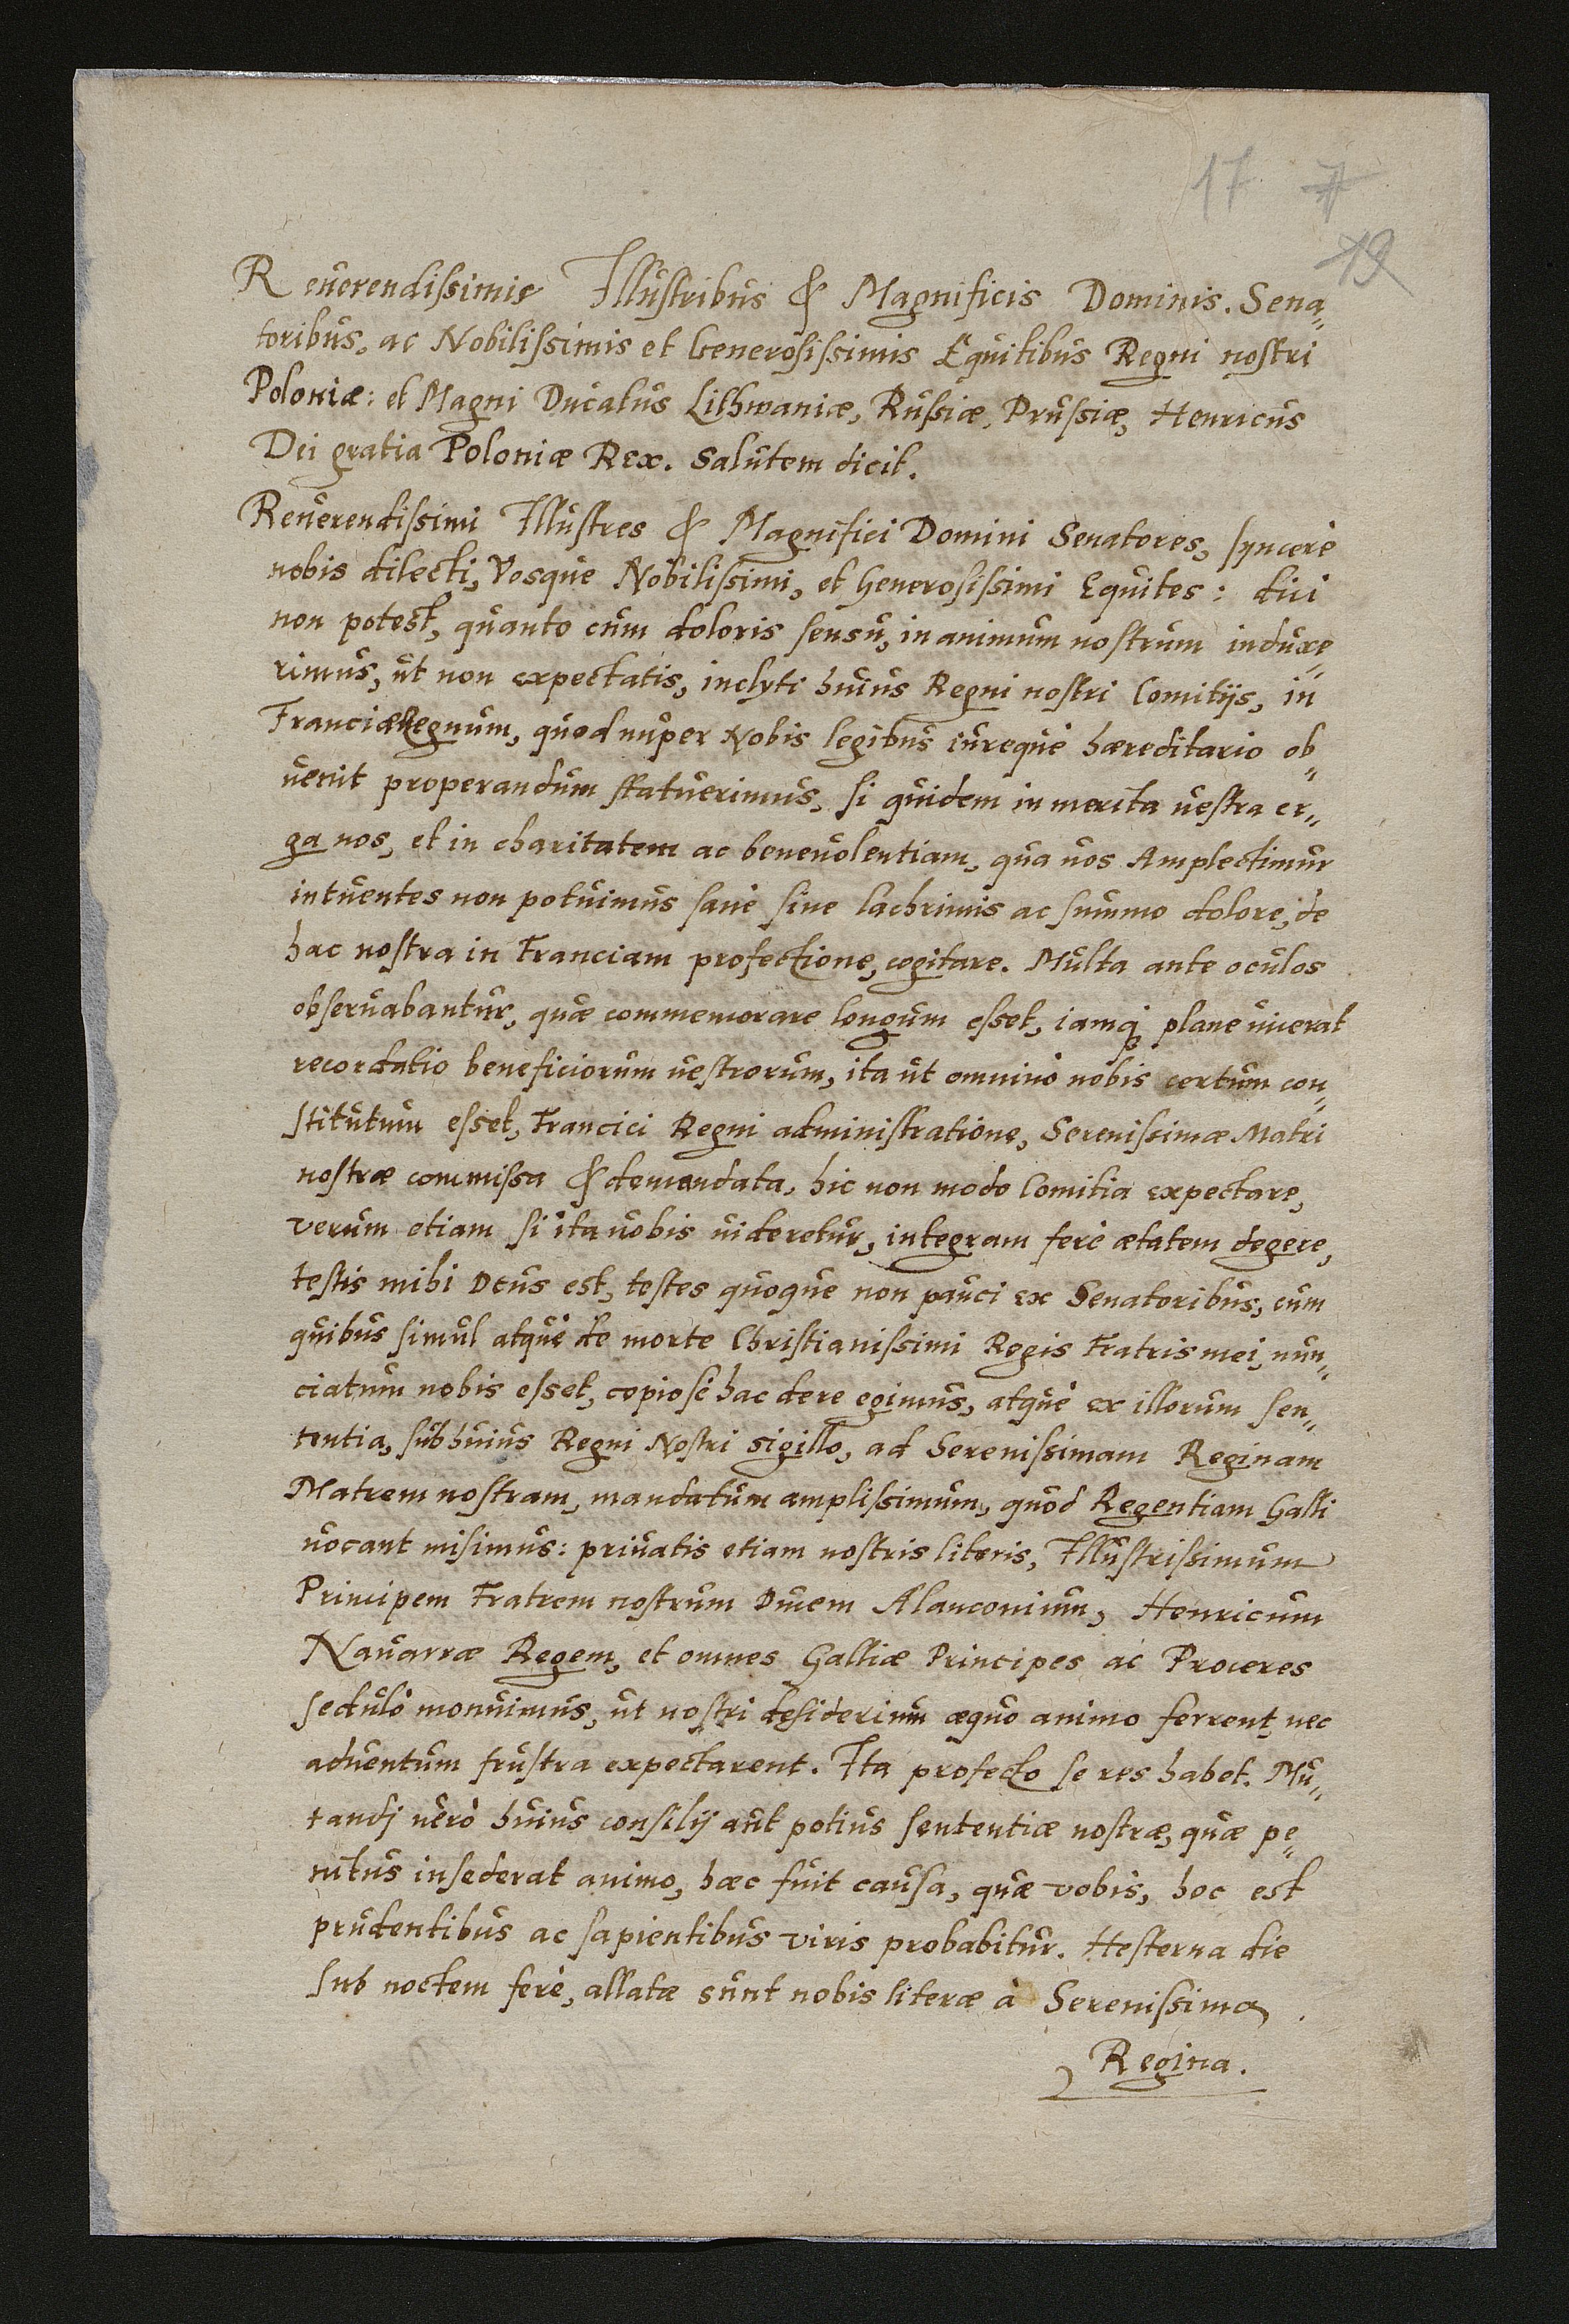 17 7
19
Reuerendissimis Illustribus & Magnificis Dominis. Sena„
toribus, ac Nobilissimis et Generosissimis Equitibus Regni nostri
Poloniæ: et Magni Ducatus Lithwaniæ, Russiæ, Prussiæ, Henricus
Dei gratia Poloniæ Rex. Salutem dicit.
Reuerendissimi Illustres & Magnifici Domini Senatores, syncerè
nobis dilecti, Vosque Nobilissimi, et Generosissimi Equites: dici
non potest, quanto cum doloris sensu, in animum nostrum induxe„
rimus, ut non expectatis, inclyti huius Regni nostri Comitijs, in
Franciæ Regnum, quod nuper Nobis legibus iureque hæreditario ob„
uenit properandum statuerimus, si quidem in merita uestra er„
ga nos, et in charitatem ac beneuolentiam, qua uos Amplectimur
intuentes non potuimus sanè sine lachrimis ac summo dolore, de
hac nostra in Franciam profectione, cogitare. Multa ante oculos
obseruabantur, quæ commemorare longum esset, iamq; plane uicerat
recordatio beneficiorum uestrorum, ita ut omninò nobis certum con„
stitutum esset, Francici Regni administratione, Serenissimæ Matri
nostræ commissa & demandata, hic non modo Comitia expectare,
verum etiam si ita uobis uideretur, integram ferè ætatem degere,
testis mihi Deus est, testes quoque non pauci ex Senatoribus, cum
quibus simul atque de morte Christianissimi Regis Fratris mei, nun„
ciatum nobis esset, copiosè hac de re egimus, atque ex illorum sen„
tentia, sub huius Regni Nostri sigillo, ad Serenissimam Reginam
Matrem nostram, mandatum amplissimum, quod Regentiam Galli
uocant misimus: priuatis etiam nostris literis, Illustrissimum
Principem Fratrem nostrum Ducem Alanconium, Henricum
Nauarræ Regem, et omnes Galliæ Principes ac Proceres
sedulò monuimus, ut nostri desiderium æquo animo ferrent, nec
aduentum frustra expectarent. Ita profecto se res habet. Mu„
tandj uerò huius consilij aut potius sententiæ nostræ, quæ pe„
nitus insederat animo, hæc fuit causa, quæ vobis, hoc est
prudentibus ac sapientibus viris probabitur. Hesterna die
sub noctem ferè, allatæ sunt nobis literæ à Serenissima
Regina.